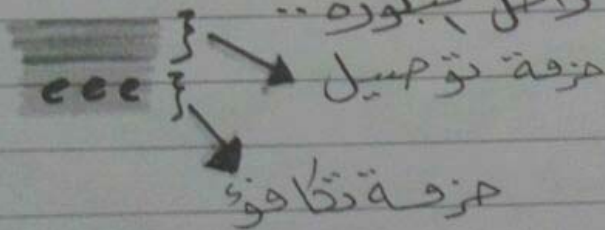 داخل البلوره ..
حزمة توصيل
e e e
حزمة تكافؤ